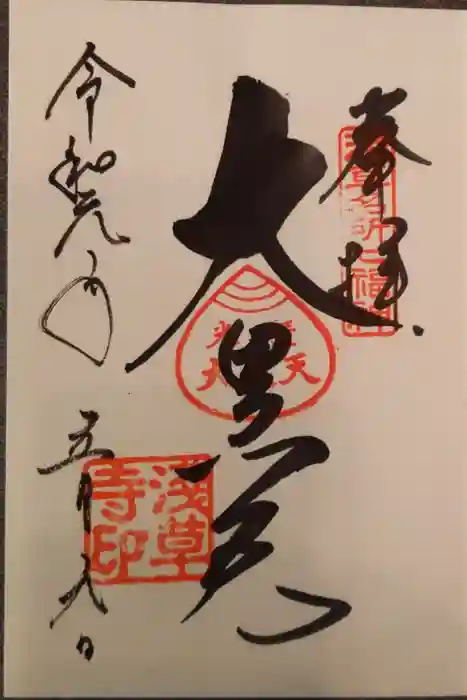 奉拝
浅草名所七福神
大黒天
淺草寺印
令和元年五月八日